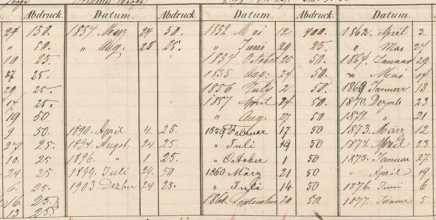 Abdruck. Datum. Abdruck. Datum. Datum.
27 150. 1857 März 24 50. 1852 Mai 12 400. 1862 April 2
" 50. " Aug. 28 25. " Juni 20 25. " Mai 24
" 50. 1854 October 25 50. 1867 Januar 29
27 25. 1855 Aug. 24 50. " Mai 14
" 25. 1856 Juli 2 50. 1869 Januar 13
14 25. 1857 April 24 50. 1870 Dezbr 23
19 50 " Aug. 27 50. 1871 " 21
9 50. 1890 April 4. 25. 1859 Februar 17 50 1873 März 12
27 25. 1894 August 24 25. " Juli 19 50. 1873 April 23
10 25 1896. " 1 25. " October 1 50 1875 Januar 27
24 25. 1899 Juli 24 50 1860 März 21 50 " April 19
6 25. 1903 Dezbr 24 25. " Juli 14 50 1876 Juni 6
16 25. 1861 September 20 50. 1877 5
13 25.